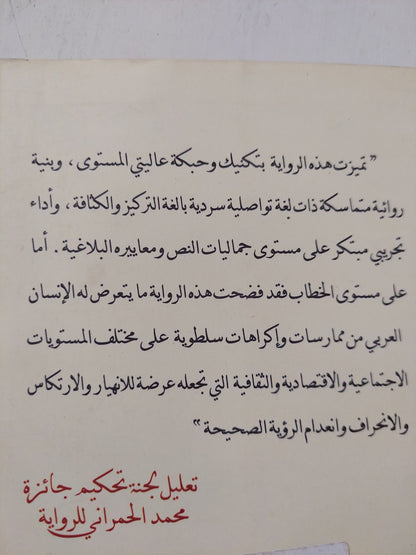 " تميزت هذه الرواية بتكنيك وحبكة عاليتي المستوى ، وبنية
روائية متماسكة ذات لغة تواصلية سردية بالغة التركيز والكثافة ، وأداء
تجريبي مبتكر على مستوى جماليات النص ومعاييره البلاغية . أما
على مستوى الخطاب فقد فضحت هذه الرواية ما يتعرض له الإنسان
العربي من ممارسات وإكراهات سلطوية على مختلف المستويات
الاجتماعية والاقتصادية والثقافية التي تجعله عرضة للانهيار والارتكاس
والانحراف وانعدام الرؤية الصحيحة "
تعليل لجنة تحكيم جائزة
محمد الحمراني للرواية